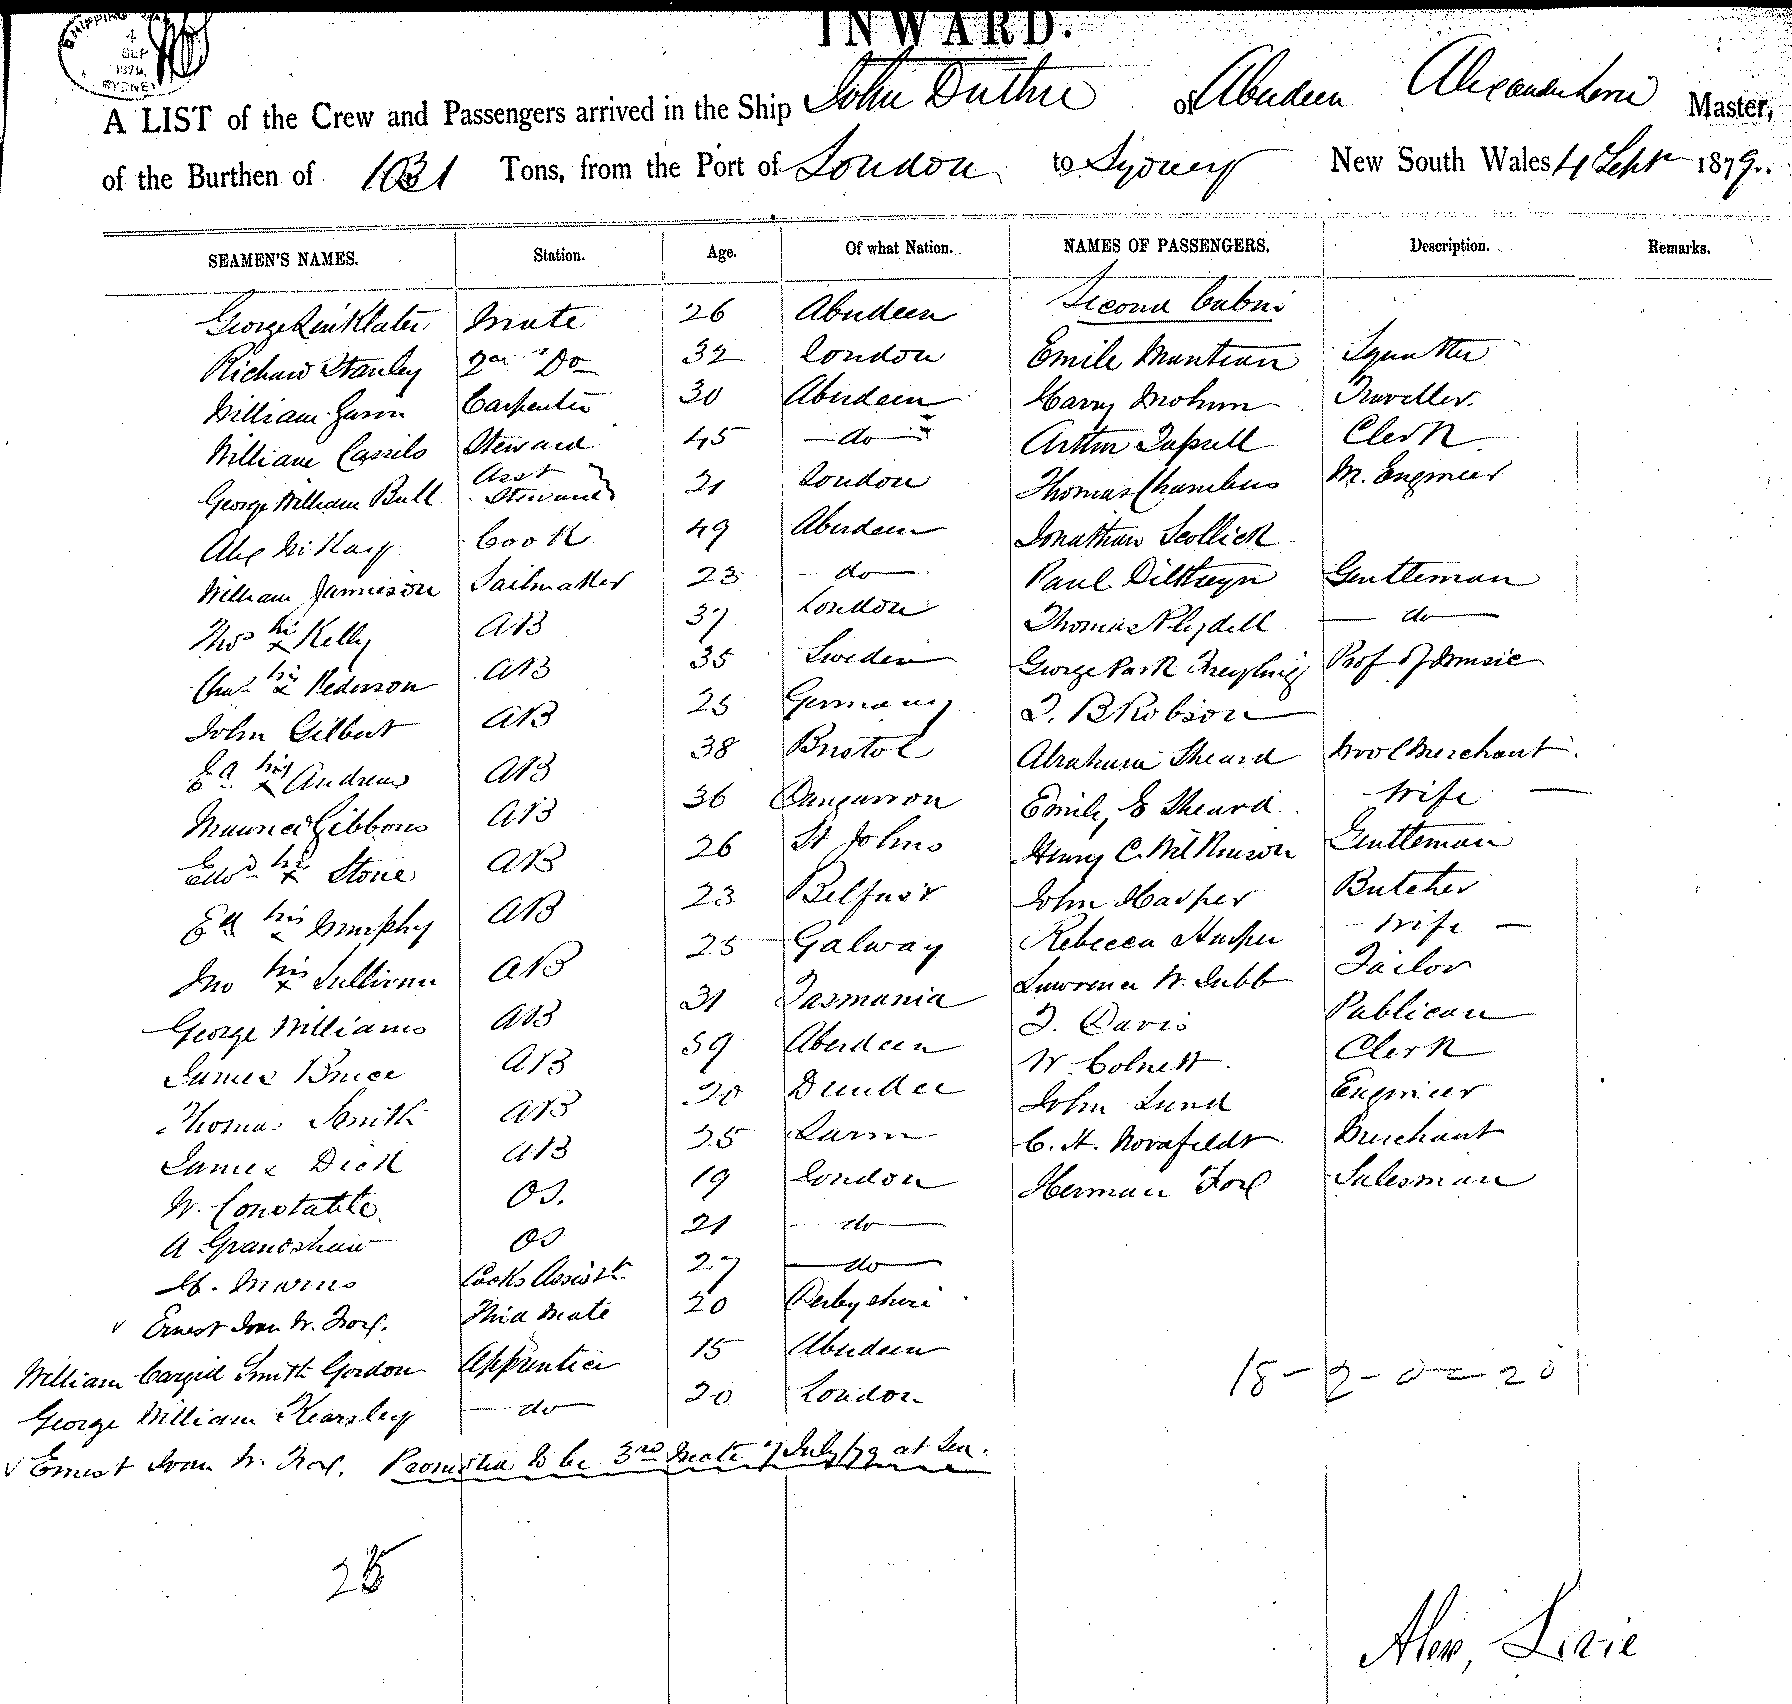 INWARD.
SHIPPING
4
SEP
1879
SYDNEY
A LIST of the Crew and Passengers arrived in the Ship John Duthie of Aberdeen Alexander Levie Master,
of the Burthen of 1031 Tons, from the Port of London to Sydney New South Wales 4 Sept 1879.
SEAMEN'S NAMES. Station. Age. Of what Nation. NAMES OF PASSENGERS. Description. Remarks.
George Linklater Mate 26 Aberdeen Second Cabin
Richard Stanley 2nd Do 32 London Emile Squatter
William Carpenter 30 Aberdeen Harry Mohun Traveller.
William Cassils Steward 45 do Arthur Tapsell Clerk
George William Bull Asst Steward 21 London Thomas Chambers M. Engineer
Alex McKay Cook 49 Aberdeen Jonathan Scollick
William Jamieson Sailmaker 23 do Paul Dillwyn Gentleman
Thos his x Kelly AB 37 London Thomas Pleydell do
Chas his x Pederson AB 35 Sweden George Park Prof of Music
John Gilbert AB 25 Germany T. B Robson
Ed his x Andrews AB 38 Bristol Abraham Sheard Wool Merchant.
Maurice Gibbons AB 36 Dungarvon Emily E Sheard Wife
Edwd his x Stone AB 26 St Johns Henry C. Wilkinson Gentleman
Ed his x Murphy AB 23 Belfast John Harper Butcher
Jno his x Sullivan AB 25 Galway Rebecca Harper Wife
George Williams AB 31 Tasmania Lawrence W. Tubb Tailor
James Bruce AB 59 Aberdeen T. Davis Publican
Thomas Smith AB 20 Dundee W. Colnett Clerk
James Dick AB 25 John Lund Engineer
W. Constable OS. 19 London C. H. Merchant
A Grandshaw OS 21 do Herman Fox Salesman
Morris Cooks Assist 27 do
Ernest Ivan W. Fox. Third Mate 20 Derbyshire
William Cargill Smith Gordon Apprentice 15 Aberdeen
George William Kearsley do 20 London
18 - 2 - 0 = 20
Ernest Ivan W. Fox. Promoted to be 3rd Mate 7 July/79 at Sea.
25
Alex, Levie